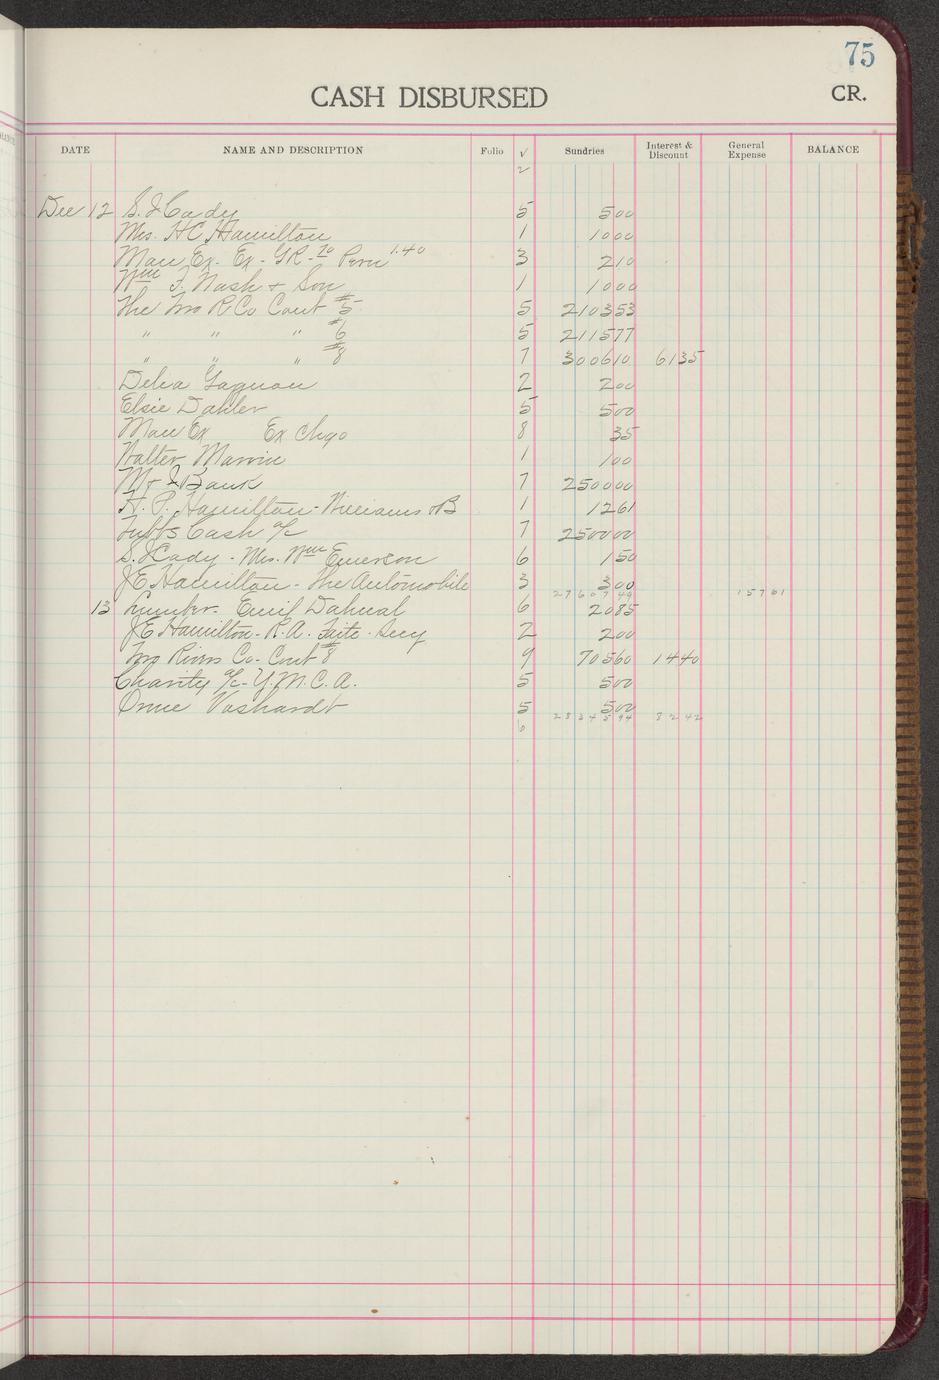 75
CASH DISBURSED
CR.
DATE NAME AND DESCRIPTION Folio √ Sundries Interest & Discount General Expense BALANCE
2
Dec 12 S. J. Cady 5 500
Mrs. H C Hamilton 1 1000
Man Ex. Ex. GR- 70 Peru 1.40 3 210
Wm F. Nash & Son 1 1000
The Two R Co Cont #5 5 210353
" " " #6 5 211577
" " " #8 7 300610 6135
Delia Gagnon 2 200
Elsie Dahler 5 500
Man Ex Ex Chgo 8 35
Walter Marvin 1 100
M & I Bank 7 250000
H. P. Hamilton - Williams 1 1261
Tubbs Cash a/c 7 250000
S. J Cady - Mrs. Wm Emerson 6 150
J E Hamilton - The Automobile 3 300
2760749 15701
13 Lumber - Emil Dahual 6 2085
J E Hamilton - R. A. Secy 2 200
Two Rivers Co - Cont #8 9 70560 1440
Charity a/c - Y. M. C. A. 5 500
Orme Voshardt 5 500
2834594 8242
6